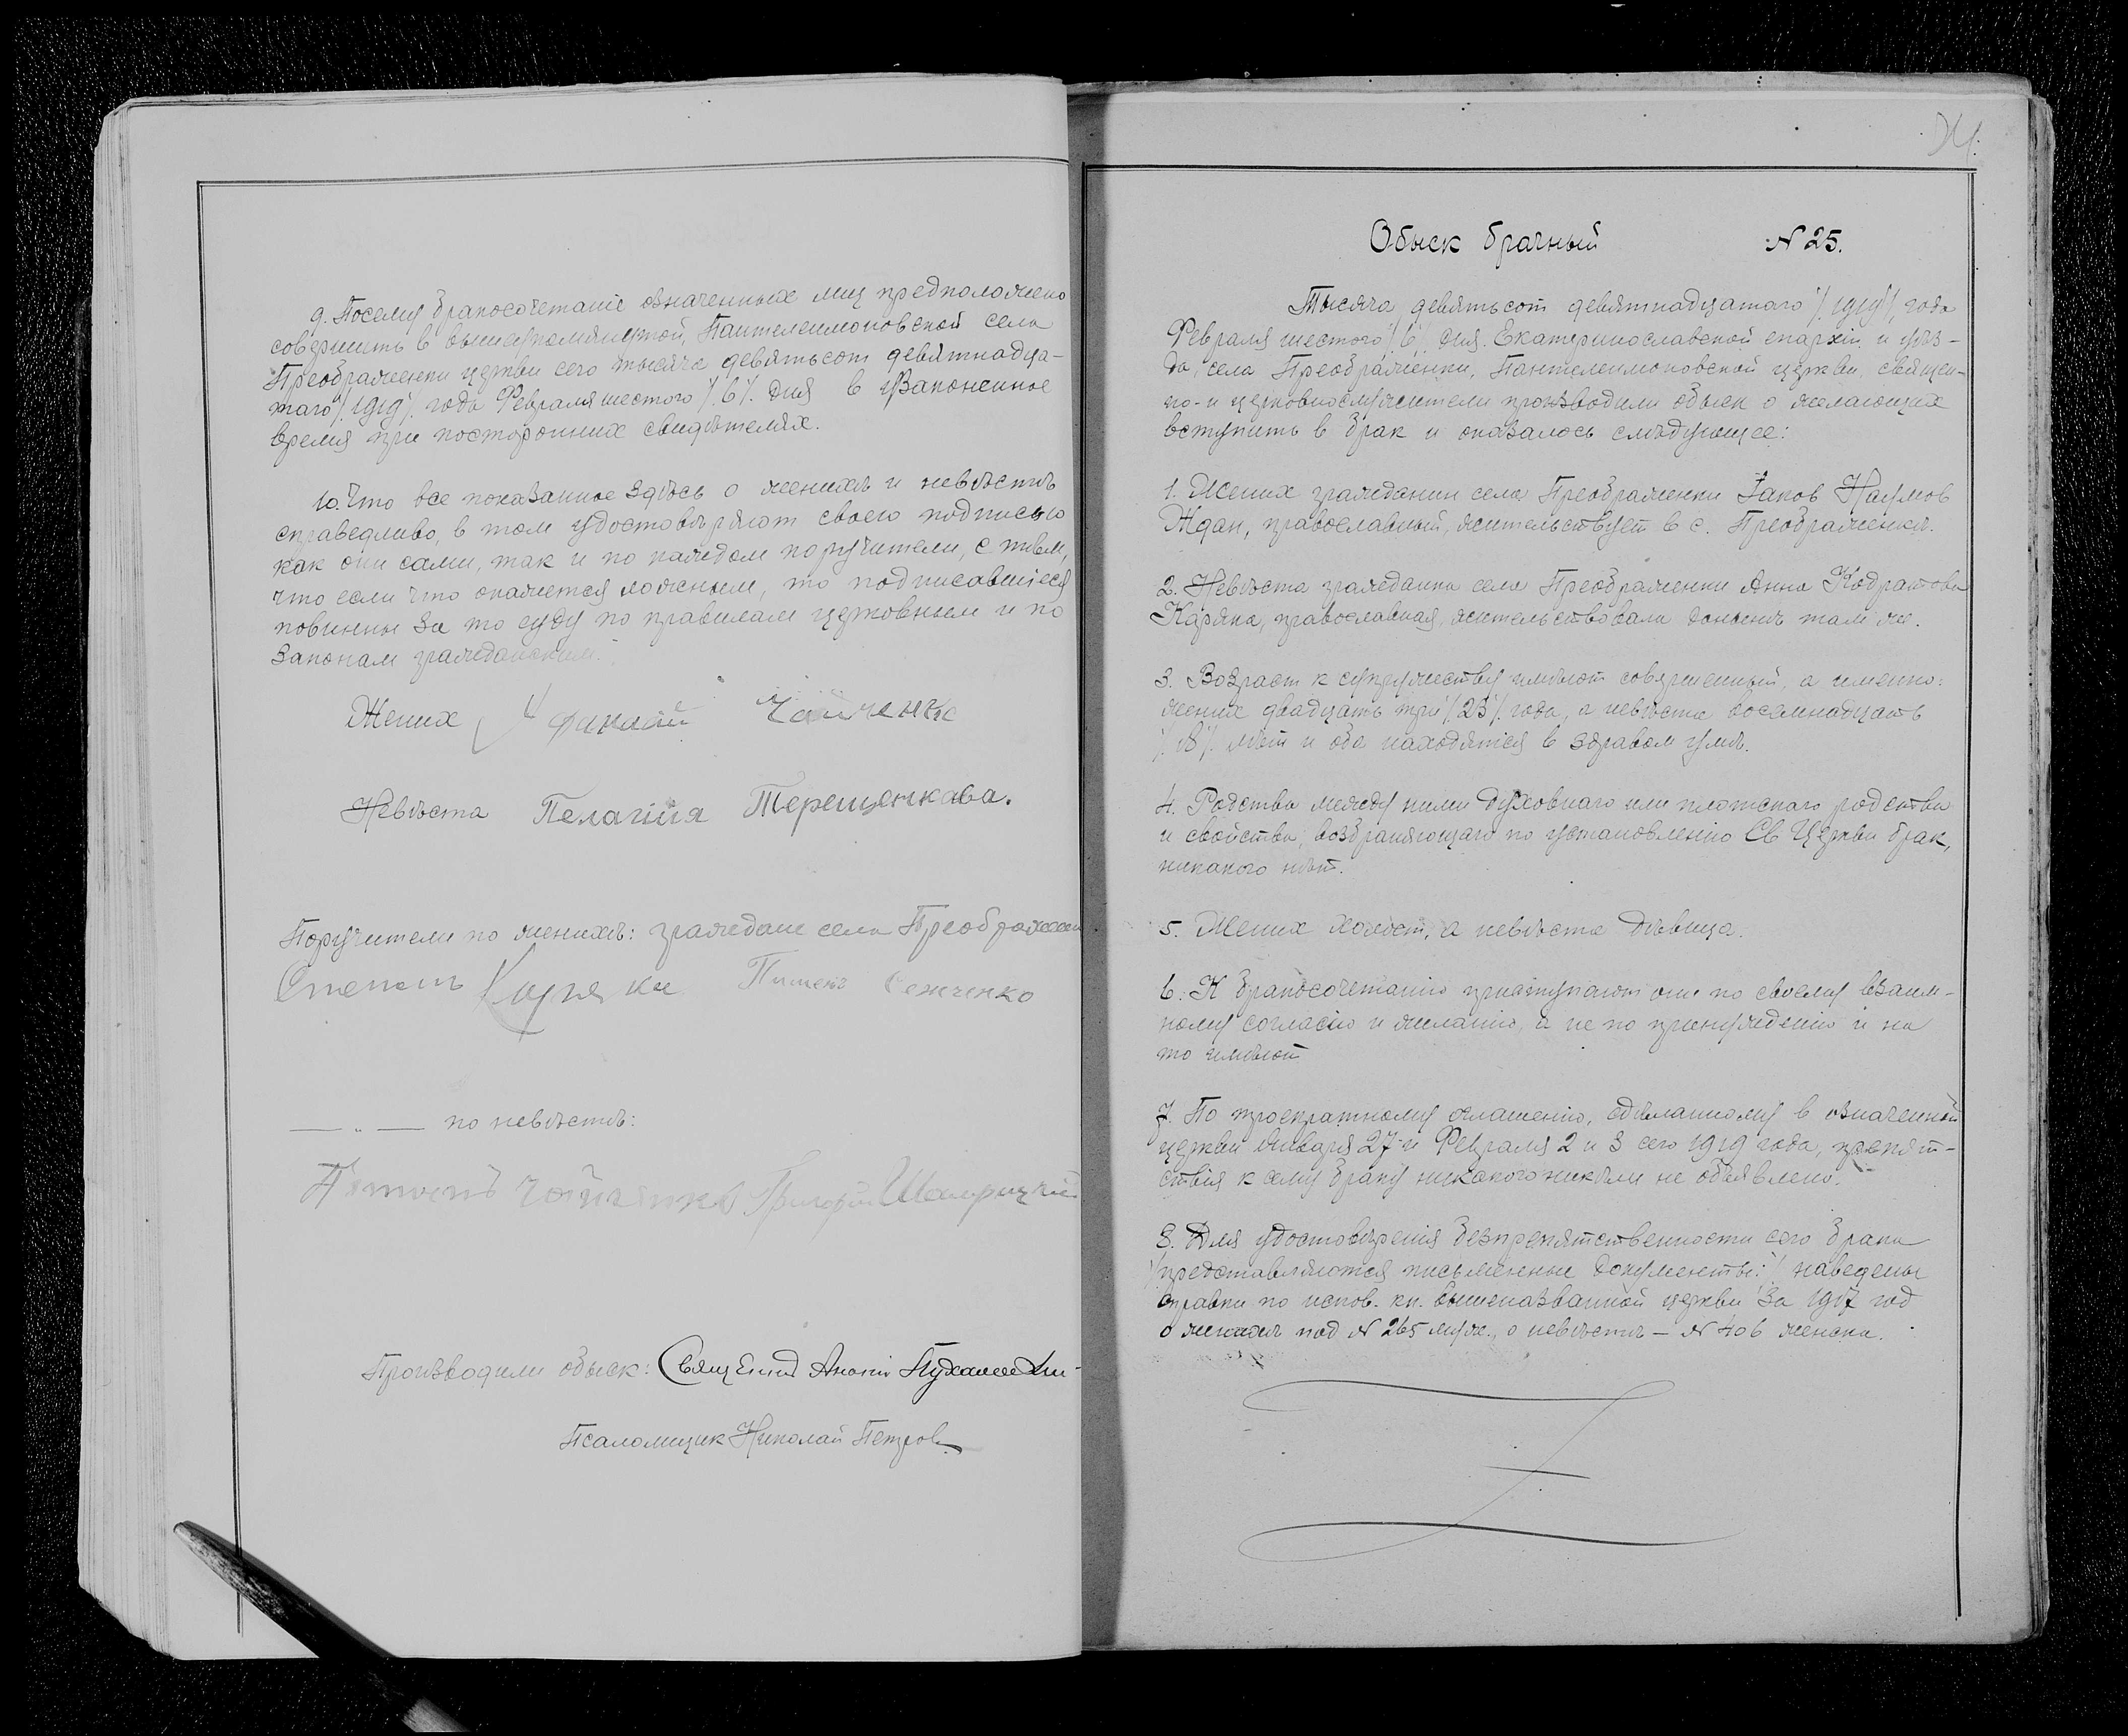 9. Посему бракосочетаніе означенных лиц предположено
совершить в вышеупомянутой, Пантелеимоновской села
Преображенки церкви сего тысяча девятьсот девятнадца-
таго /1919/ года Февраля шестого /6/ дня в узаконенное
время при посторонних свидѣтелях.
10. Что все показанное здѣсь о женихѣ и невѣстѣ
справедливо, в том удостовѣряют своею подписью
как они сами, так и по каждом поручители, с тѣм,
что если что окажется ложным, то подписавшіеся
повинны за то суду по правилам церковным и по
законам гражданским.
Жених Чайченко
Невѣста Пелагіия Терещенкава.
Поручители по женихѣ: граждане села
Степан Каряка Пимен
— „ — по невѣстѣ:
Григорій
Производили обыск:
Псаломщик Николай Петров
Обыск брачный № 25.
Тысяча девятьсот девятнадцатаго /1919/ года
Февраля шестого /6/ дня. Екатеринославской епархіи и уѣз-
да, села Преображенки, Пантелеимоновской церкви, священ-
но- и церковнослужители производили обыск о желающих
вступить в брак и оказалось слѣдующее:
1. Жених гражданин села Преображенки Іаков Наумов
Ждан, православный, жительствует в с. Преображенкѣ.
2. Невѣста гражданка села Преображенки Анна Кодратова
Каряка, православная, жительствовала донынѣ там же.
3. Возраст к супружеству имѣют совершенный, а именно:
жених двадцать три /23/ года, а невѣста восемнадцать
/18/ лѣт и оба находятся в здравом умѣ.
4. Родства между ними духовнаго или плотскаго родства
и свойства, возбраняющаго по установленію Св Церкви брак,
никакого нѣт.
5. Жених холост, а невѣста дѣвица.
6. К бракосочетанію приступают они по своему взаим-
ному согласію и желанію, а не по принужденію и на
то имѣют
7. По троекратному оглашенію, сдѣланному в означенной
церкви Января 27 и Февраля 2 и 3 сего 1919 года, препят-
ствія к сему браку никакого никѣм не объявлено.
8. Для удостовѣренія безпрепятственности сего брака
представляются письменные документы: наведены
справки по испов. кн. вышеназванной церкви за 1917 год
о женихѣ под № 265 муж., о невѣстѣ — № 406 женск.